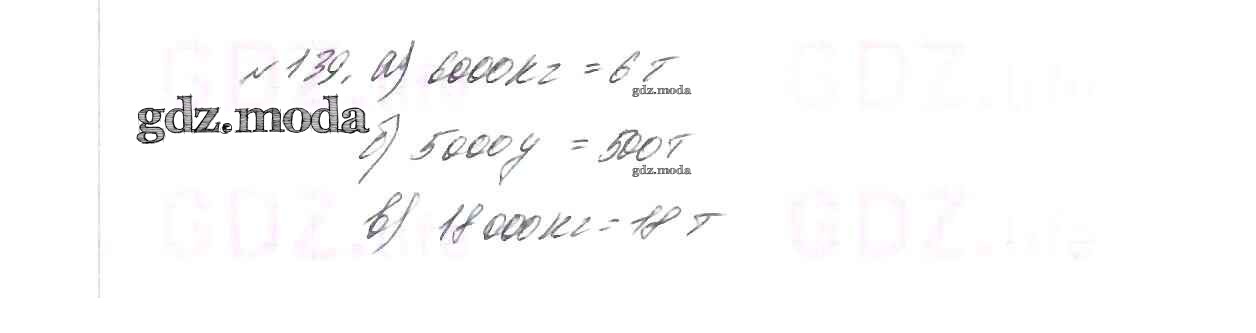 № 139. а) 6000кг = 6 т
gdz.moda
gdz.moda
б) 5000ц = 500т
gdz.moda
в) 18 000кг = 18 т